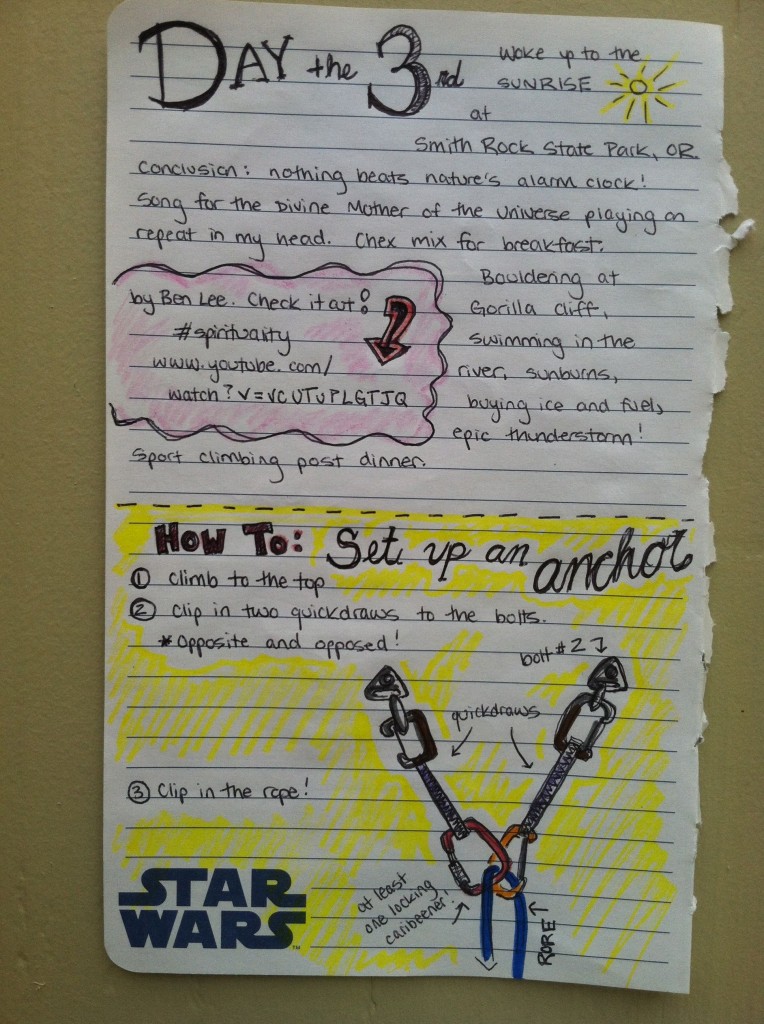 DAY the 3rd
Woke up to the
SUNRISE
at
Smith Rock State Park, OR.
Conclusion: nothing beats nature's alarm clock!
Song for the Divine Mother of the Universe playing on
repeat in my head. Chex mix for breakfast.
by Ben Lee. Check it out:
#spirituality
www.youtube.com/
watch?v=vCUTuPLGTJQ
Bouldering at
Gorilla cliff,
swimming in the
river, sunburns,
buying ice and fuel,
epic thunderstorm!
Sport climbing post dinner.
HOW TO: Set up an anchor
① Climb to the top
② Clip in two quickdraws to the bolts.
*Opposite and opposed!
bolt #2
quickdraws
③ Clip in the rope!
at least
one locking
caribeener!
ROPE
STAR
WARS
TM